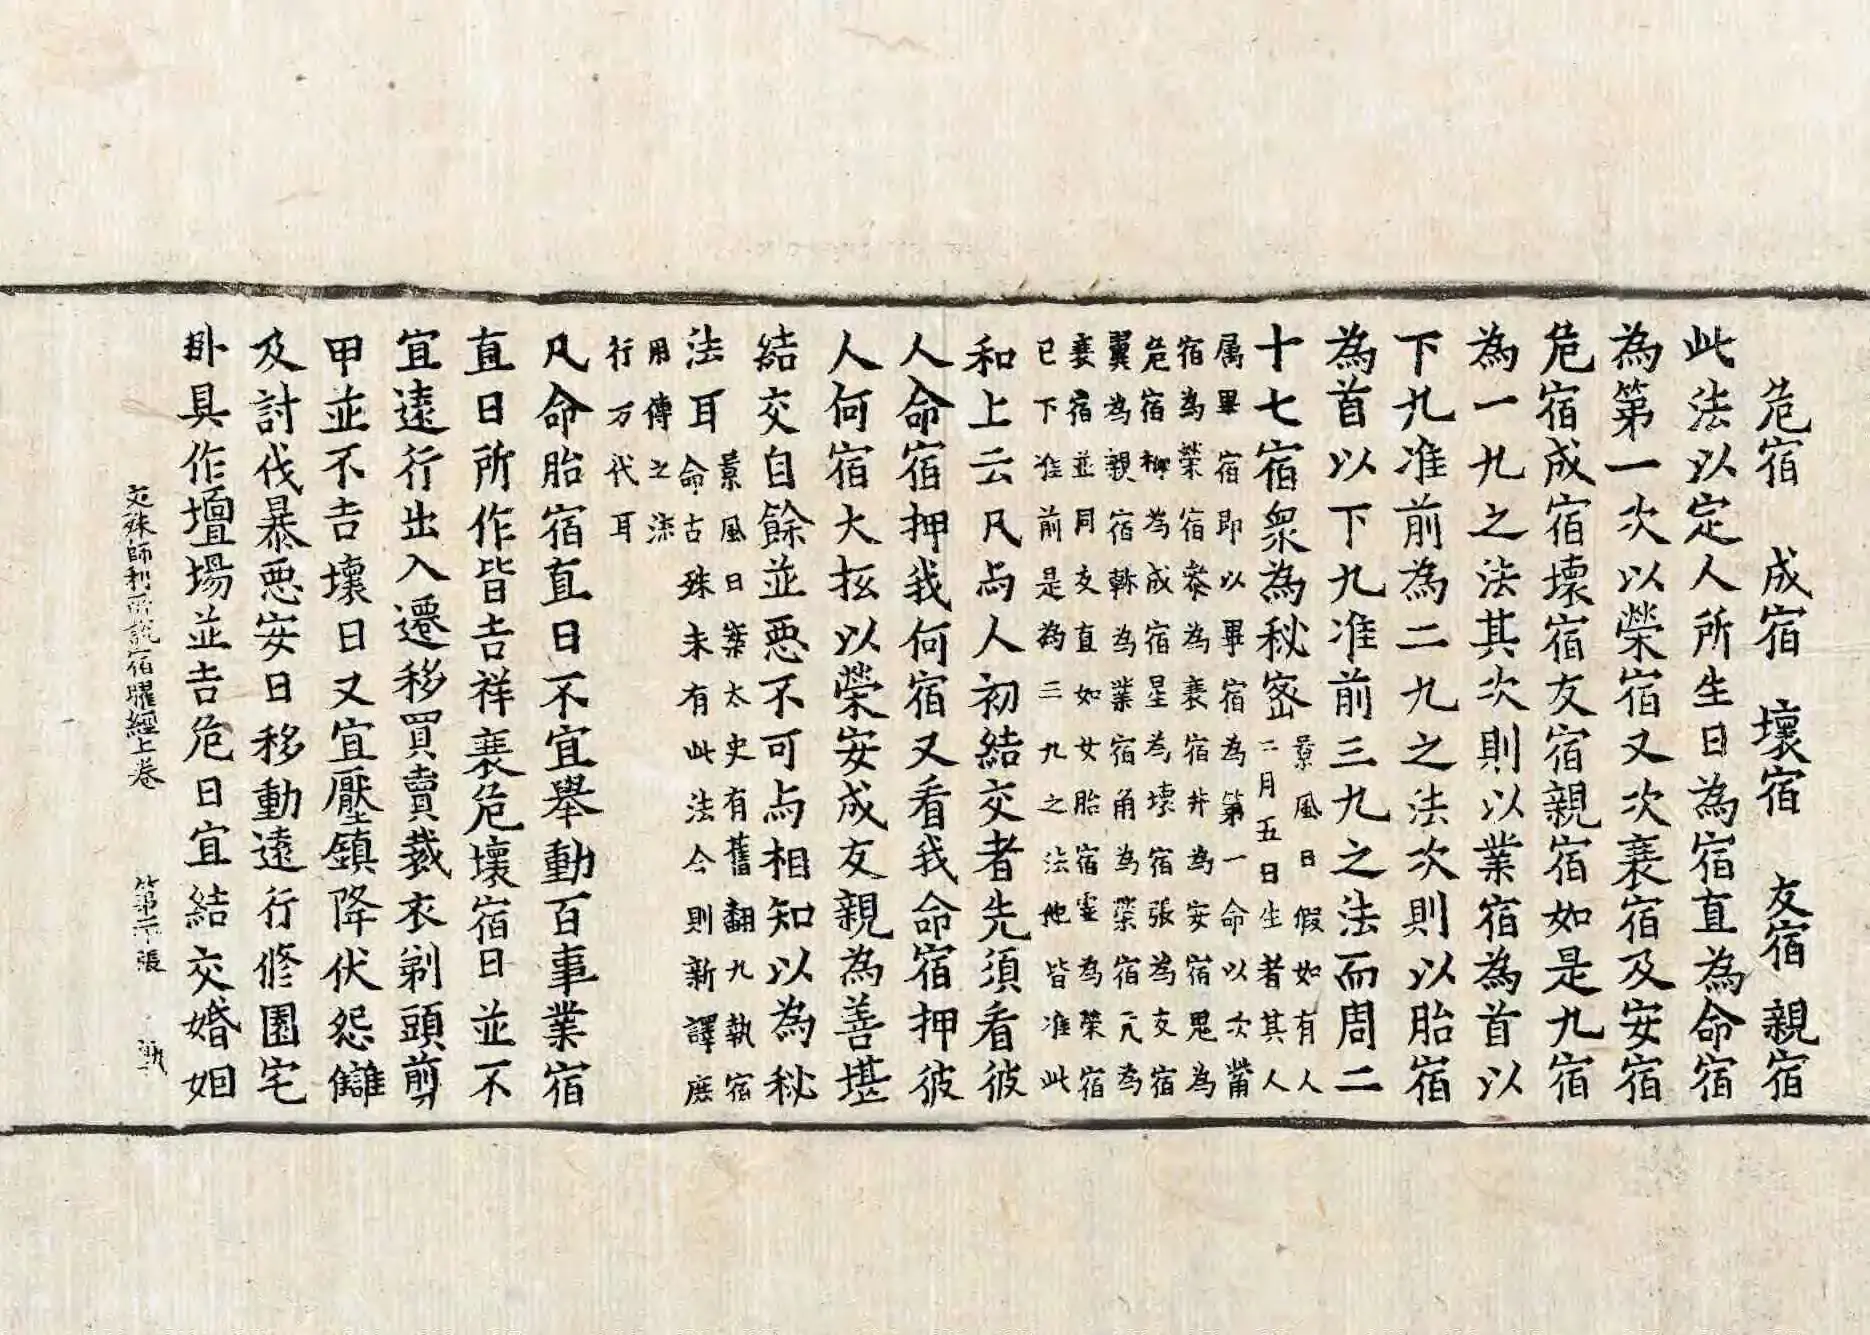 危宿 成宿 壞宿 友宿 親宿
此法以定人所生日為宿直為命宿
為第一次以榮宿又次衰宿及安宿
危宿成宿壞宿友宿親宿如是九宿
為一九之法其次則以業宿為首以
下九准前為二九之法次則以胎宿
為首以下九准前三九之法而周二
十七宿衆為秘宻
景風曰假如有人
二月五日生者其人
属畢宿即以畢宿為第一命以次觜
宿為榮宿參為衰宿井為安宿鬼為
危宿柳為成宿星為壞宿張為友宿
翼為親宿軫為業宿角為榮宿亢為
衰宿並同友直如女胎宿虛為榮宿
已下准前是為三九之法他皆准此
和上云凡与人初結交者先須看彼
人命宿押我何宿又看我命宿押彼
人何宿大抵以榮安成友親為善堪
結交自餘並惡不可与相知以為秘
法耳
景風曰案太史有舊翻九執宿
命古殊未有此法今則新譯庶
用傳之深
行万代耳
凡命胎宿直日不宜舉動百事業宿
直日所作皆吉祥衰危壞宿日並不
宜遠行出入遷移買賣裁衣剃頭剪
甲並不吉壞日又宜壓鎮降伏怨讎
及討伐暴惡安日移動遠行修園宅
卧具作壇場並吉危日宜結交婚姻
文殊師利所説宿曜經上卷 第二十張